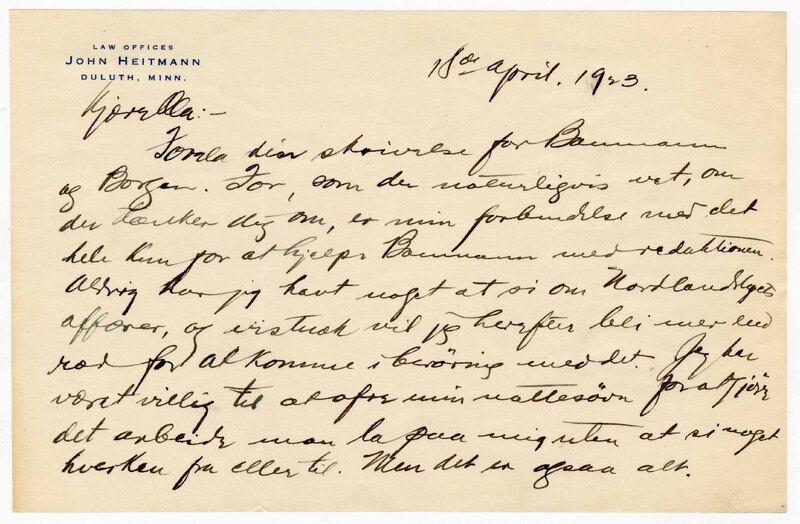 LAW OFFICES
JOHN HEITMANN
DULUTH, MINN.
18de april. 1923.
Kjære Ola:-
Forela din skrivelse for Baumann
og Borgen. For, som du naturligvis vet, om
du tænker dig om, er min forbindelse med det
hele kun for at hjelpe Baumann med redaktionen.
Aldrig har jeg havt noget at si om Nordlandslagets
affærer, og vistnok vil jeg herefter bli mer end
ræd for at komme i berøring med det. Jeg har
været villig til at ofre min nattesøvn for at gjøre
det arbeide man la paa mig uten at si noget
hverken fra eller til. Men det er ogsaa alt.